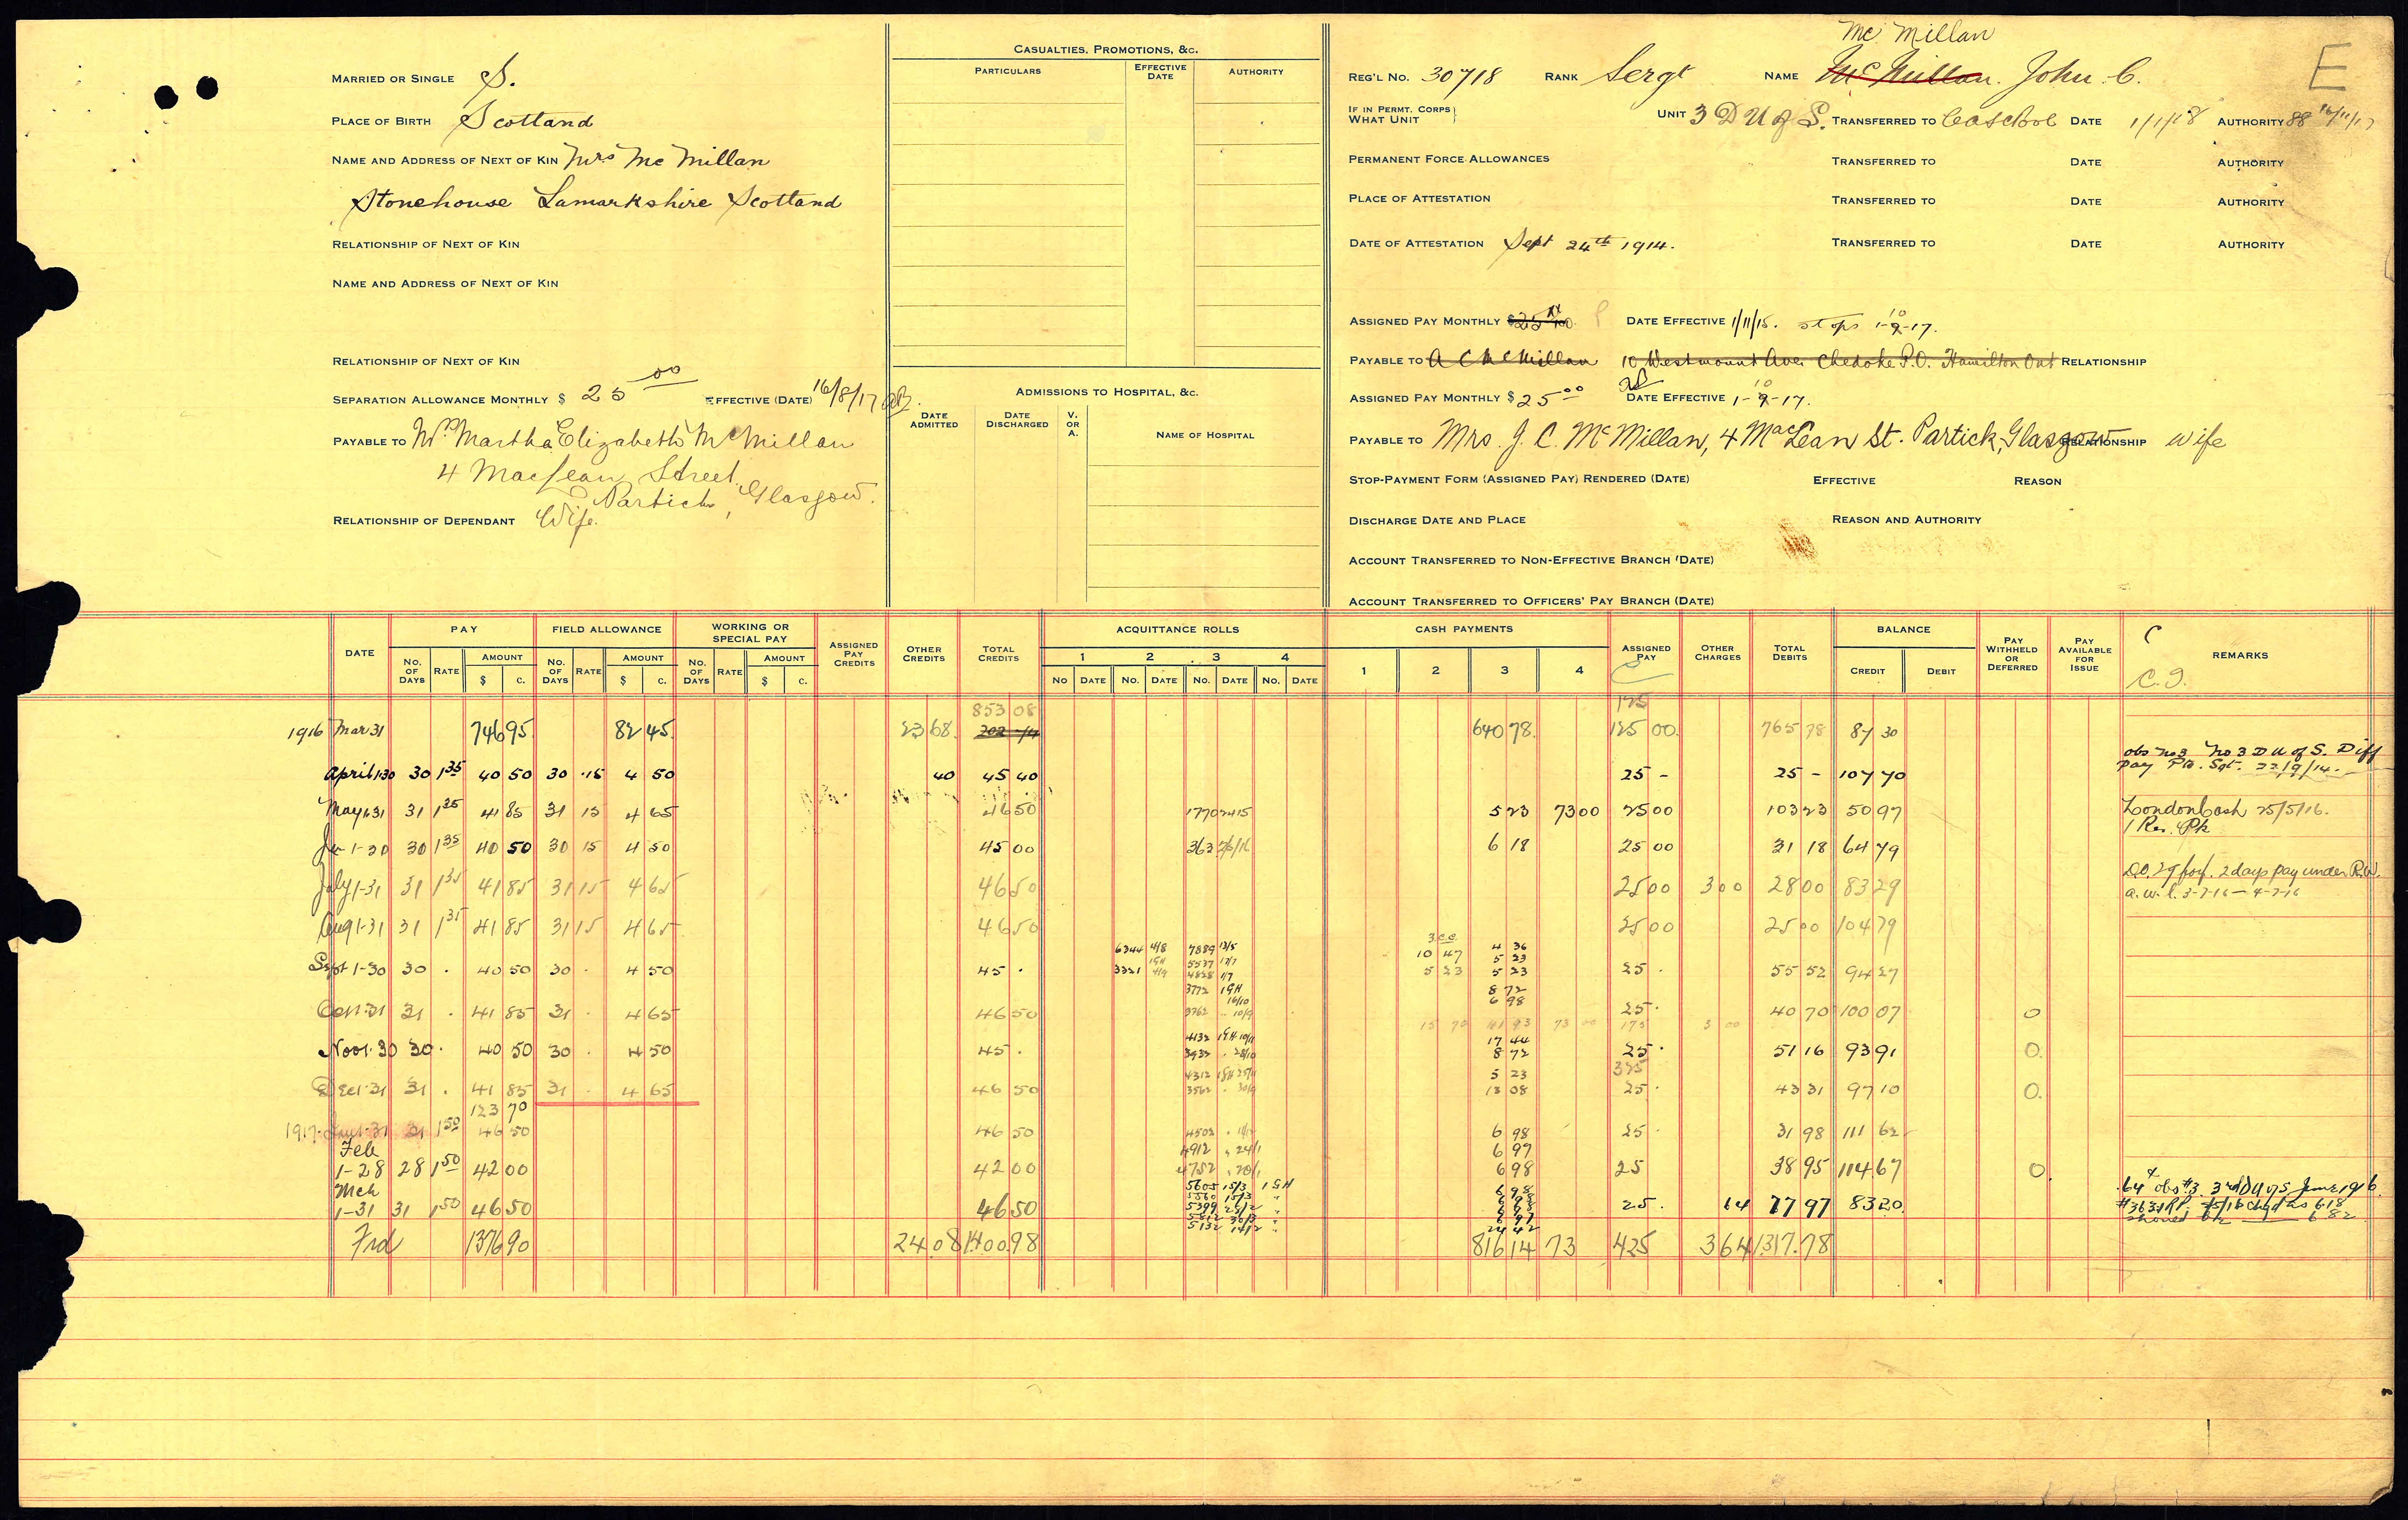 MARRIED OR SINGLE S.
PLACE OF BIRTH Scotland
NAME AND ADDRESS OF NEXT OF KIN Mrs McMillan
Stonehouse Lamarkshire Scotland
RELATIONSHIP OF NEXT OF KIN
NAME AND ADDRESS OF NEXT OF KIN
RELATIONSHIP OF NEXT OF KIN
SEPARATION ALLOWANCE MONTHLY $ 25 00 EFFECTIVE (DATE) 16/8/17
PAYABLE TO Mrs Martha Elizabeth McMillan
4 MacLean Street
Partick, Glasgow.
RELATIONSHIP OF DEPENDANT Wife.
CASUALTIES, PROMOTIONS, &C.
PARTICULARS EFFECTIVE DATE AUTHORITY
ADMISSIONS TO HOSPITAL, &C.
DATE ADMITTED DATE DISCHARGED V. OR A. NAME OF HOSPITAL
Mc Millan
E
REG'L NO. 30718 RANK Sergt NAME McMillan. John C.
IF IN PERMT. CORPS WHAT UNIT UNIT 3 D U of S. TRANSFERRED TO DATE 1/1/18 AUTHORITY 88 16/11/17
PERMANENT FORCE ALLOWANCES TRANSFERRED TO DATE AUTHORITY
PLACE OF ATTESTATION TRANSFERRED TO DATE AUTHORITY
DATE OF ATTESTATION Sept 24th 1914. TRANSFERRED TO DATE AUTHORITY
ASSIGNED PAY MONTHLY $25 00 DATE EFFECTIVE 1/11/15. stops 1-10-17.
PAYABLE TO A C McMillan 10 Westmount Ave. Chedoke P.O. Hamilton Ont RELATIONSHIP
ASSIGNED PAY MONTHLY $ 25 00 DATE EFFECTIVE 1-10-17.
PAYABLE TO Mrs. J. C. McMillan, 4 MacLean St. Partick, Glasgow RELATIONSHIP wife
STOP-PAYMENT FORM (ASSIGNED PAY) RENDERED (DATE) EFFECTIVE REASON
DISCHARGE DATE AND PLACE REASON AND AUTHORITY
ACCOUNT TRANSFERRED TO NON-EFFECTIVE BRANCH (DATE)
ACCOUNT TRANSFERRED TO OFFICERS' PAY BRANCH (DATE)
DATE PAY FIELD ALLOWANCE WORKING OR SPECIAL PAY ASSIGNED PAY CREDITS OTHER CREDITS TOTAL CREDITS ACQUITTANCE ROLLS CASH PAYMENTS ASSIGNED PAY OTHER CHARGES TOTAL DEBITS BALANCE PAY WITHHELD OR DEFERRED PAY AVAILABLE FOR ISSUE REMARKS
C
C.I.
NO. OF DAYS RATE AMOUNT NO. OF DAYS RATE AMOUNT NO. OF DAYS RATE AMOUNT 1 2 3 4 1 2 3 4 CREDIT DEBIT
$ C. $ C. $ C. NO DATE NO. DATE NO. DATE NO. DATE
853 08 125
1916 Mar 31 746 95 82 45 23 68 640 78 125 00 765 78 87 30
obs No 3 No 3 D U of S. Diff
April 1-30 30 1 35 40 50 30 .15 4 50 40 45 40 25 - 25 - 107 70 pay Pte. Sgt. 22/9/14.
May 1-31 31 1 35 41 85 31 15 4 65 46 50 5 23 73 00 25 00 103 23 50 97 London Cash 25/5/16.
Je 1-30 30 1 35 40 50 30 15 4 50 45 00 363 6 18 25 00 31 18 64 79
July 1-31 31 1 35 41 85 31 15 4 65 46 50 25 00 3 00 28 00 83 29 D.O. 29 forf. 2 days pay under R.W.
a.w.l. 3-7-16 - 4-7-16
Aug 1-31 31 1 35 41 85 31 15 4 65 46 50 25 00 25 00 104 79
6344 4/8 7889 10 47 4 36
5537 5 23
Sept 1-30 30 . 40 50 30 . 4 50 45 . 3321 4828 1/7 5 23 5 23 25 . 55 52 94 27
3772 8 72
16/10 6 98
Oct 1-31 31 . 41 85 31 . 4 65 46 50 25 . 40 70 100 07 0
15 70 41 93 73 00 175 3 00
4132 17 44
Nov 1-30 30 . 40 50 30 . 4 50 45 . 3932 8 72 25 . 51 16 93 91 0.
4312 5 23
Dec 1-31 31 . 41 85 31 . 4 65 46 50 3562 13 08 25 . 43 31 97 10 0.
123 70
1917 Jan 1-31 31 1 50 46 50 46 50 4502 6 98 25 . 31 98 111 62
Feb 4912 24/1 6 97
1-28 28 1 50 42 00 42 00 4752 20/1 6 98 25 38 95 114 67 0
Mch 5605 15/3 6 98 .64 obs #3 3rd D U of S June 1916
1-31 31 1 50 46 50 46 50 25 . 64 77 97 83 20
24 42
Frd 1376 90 24 08 1400 98 816 14 73 425 3 64 1317.78